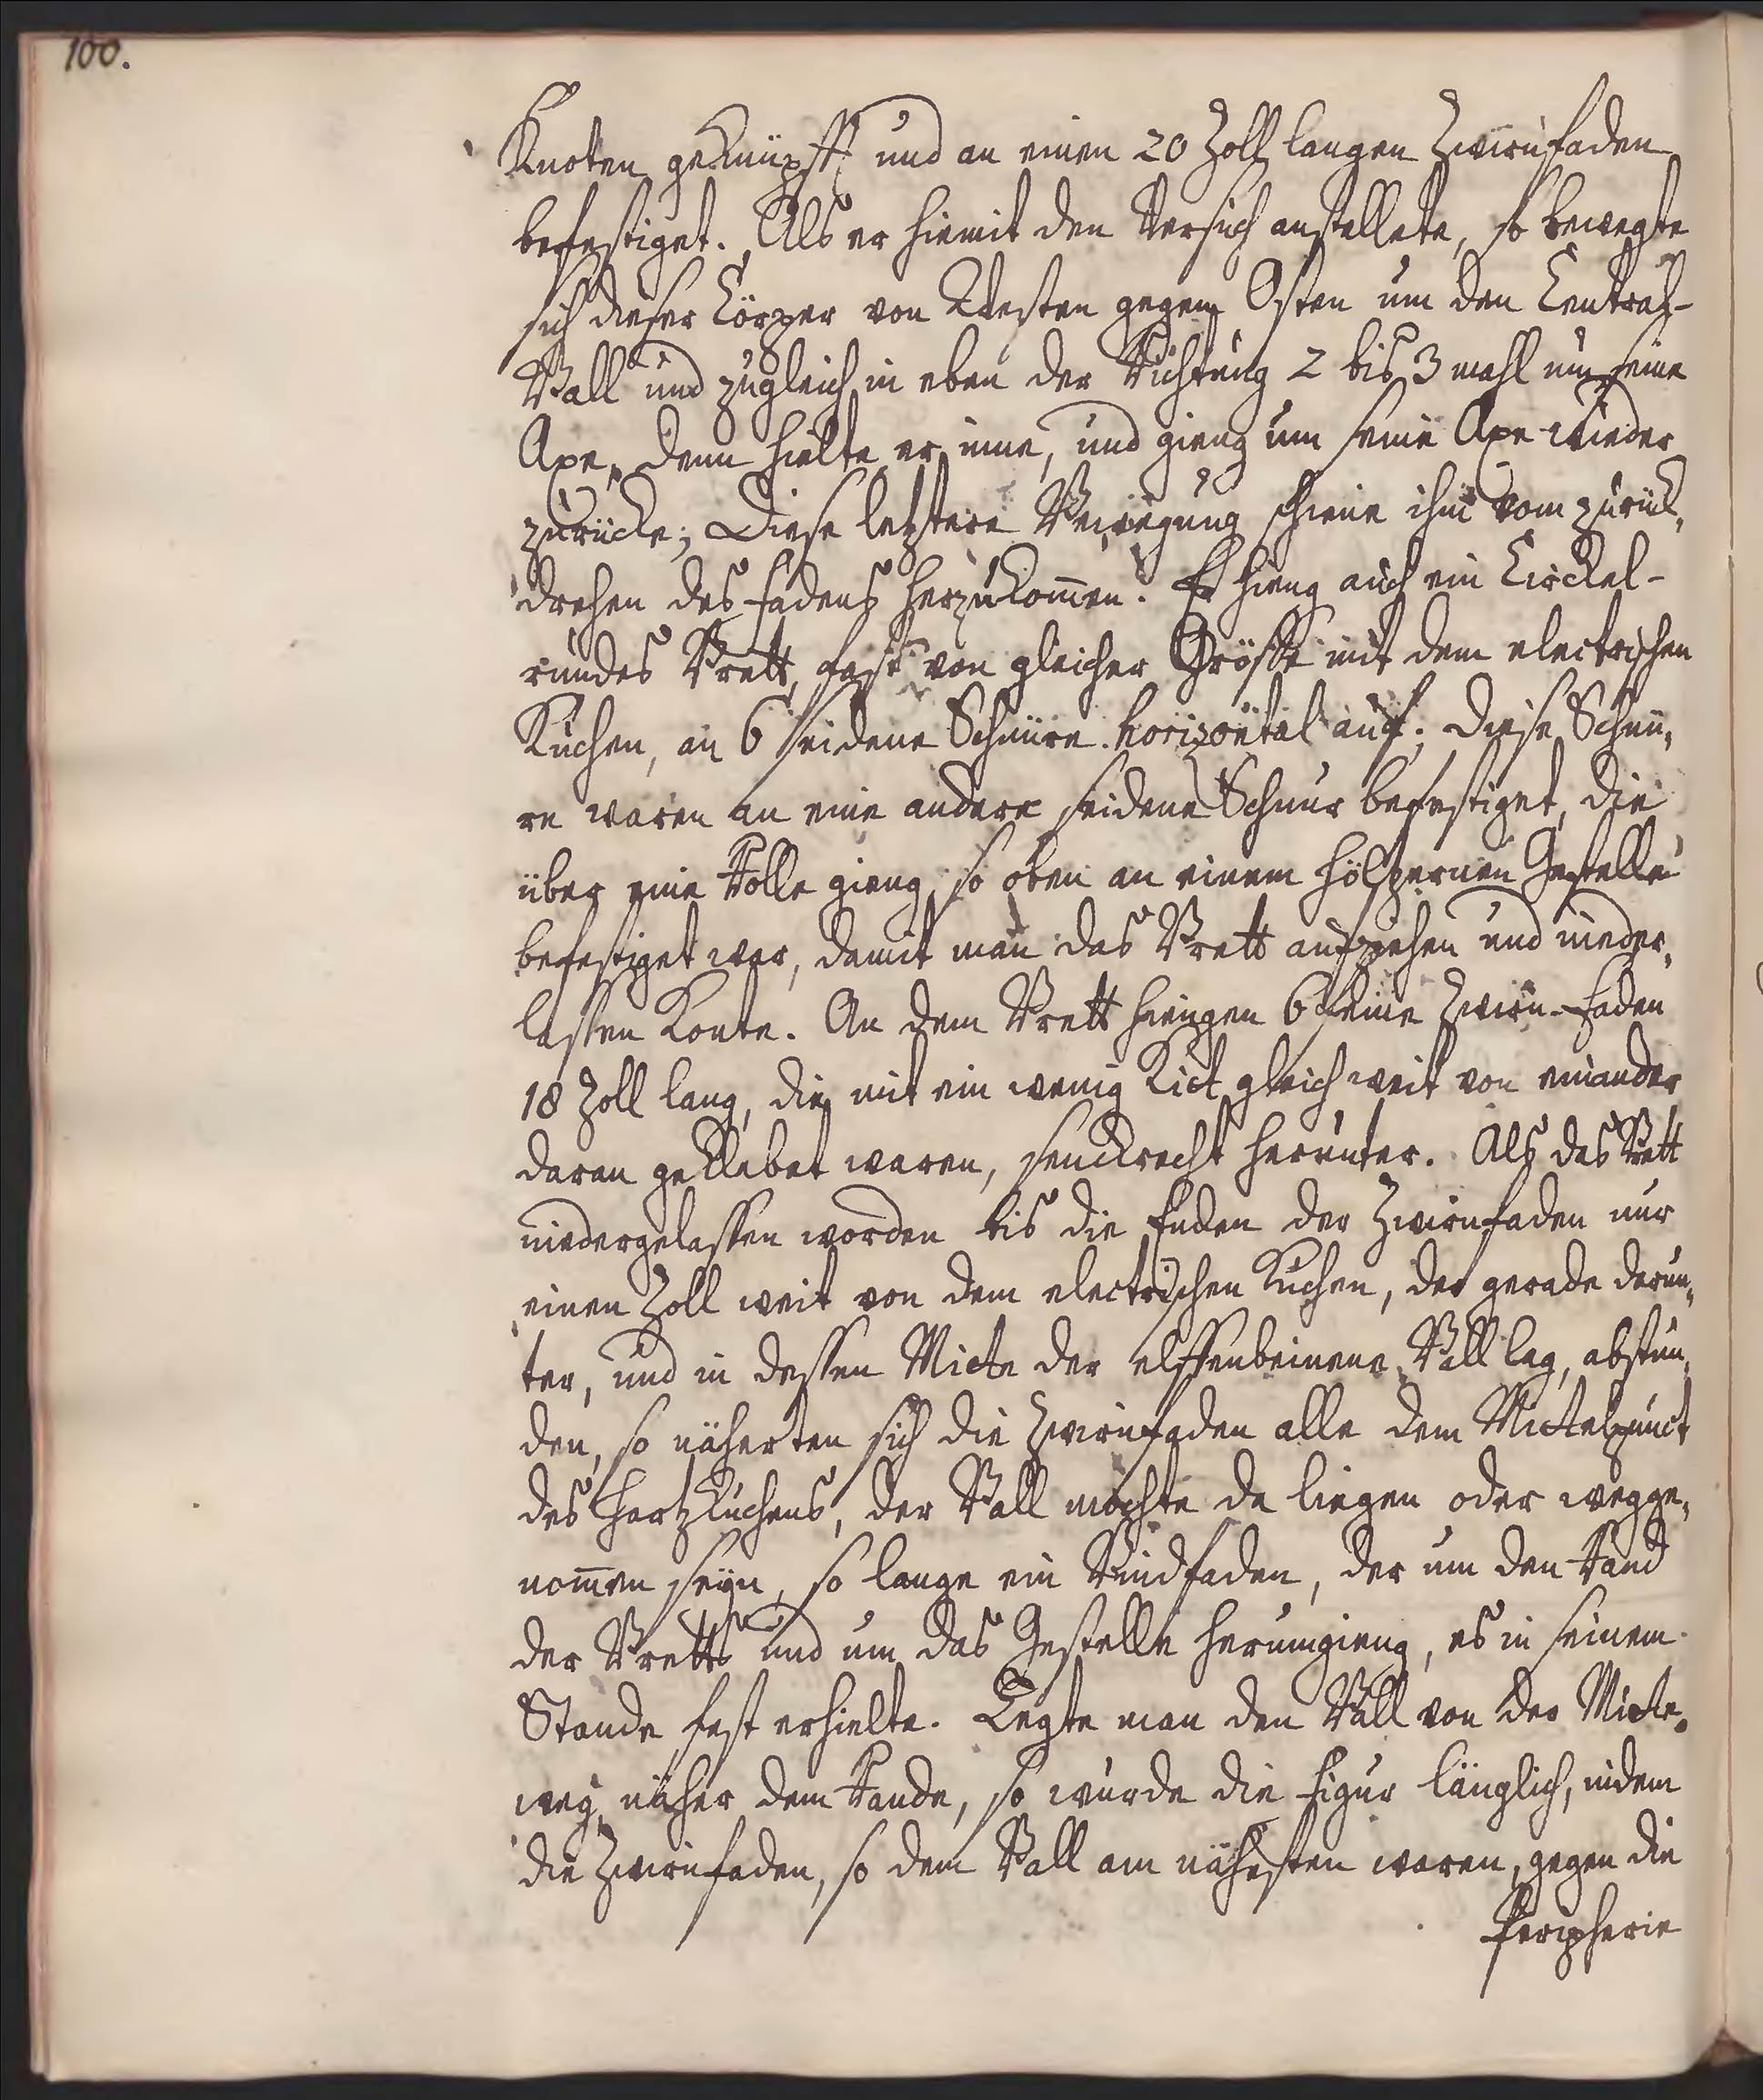 100.
Knoten geknüpfft und an einen 20 Zoll langen Zwirnfaden
befestiget. Als er hiemit den Versuch anstellete, so bewegte
sich dieser Cörper von Westen gegen Osten um den Central-
Ball und zugleich in eben der Richtung 2 bis 3 mahl um seine
Axe, denn hielte er inne, und gieng um seine Axe wieder
zurücke; Diese letztere Bewegung schiene ihm vom zurück,
drehen des Fadens herzukom̅en. Er hieng auch ein Circkel-
rundes Brett, fast von gleicher Grösse mit dem electrischen
Kuchen, an 6 seidene Schnüre horizontal auf; Diese Schnü,
re waren an eine andere seidene Schnur befestiget, die
über eine Rolle gieng, so oben an einem höltzernen Gestelle
befestiget war, damit man das Brett aufziehen und nieder,
lassen konte. An dem Brett hiengen 6 feine Zwirn-Faden
18 Zoll lang, die mit ein wenig Kitt gleich weit von einander
daran geklebet waren, senckrecht herunter. Als das Brett
niedergelassen worden bis die Enden der Zwirnfaden nur
einen Zoll weit von dem electrischen Kuchen, der gerade darun,
ter, und in dessen Mitte der elffenbeinene Ball lag, abstun,
den, so näherten sich die Zwirnfaden alle dem Mittelpunct
des Hartzkuchens, der Ball mochte da liegen oder wegge,
nom̅en seyn, so lange ein Bindfaden, der um den Rand
der Bretts und um das Gestelle herumgieng, es in seinem
Stande fest erhielte. Legte man den Ball von der Mitte
weg, näher dem Rande, so wurde die Figur länglich, indem
die Zwirnfaden, so dem Ball am nähesten waren, gegen die
Peripherie